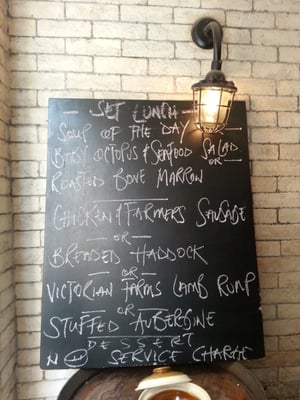 — SET LUNCH —
SOUP OF THE DAY — OR —
BABY OCTOPUS & SEAFOOD SALAD
— OR —
ROASTED BONE MARROW
CHICKEN & FARMERS SAUSAGE
— OR —
BREADED HADDOCK
— OR —
VICTORIAN FARMS LAMB RUMP
— OR —
STUFFED AUBERGINE
DESSERT
SERVICE CHARGE